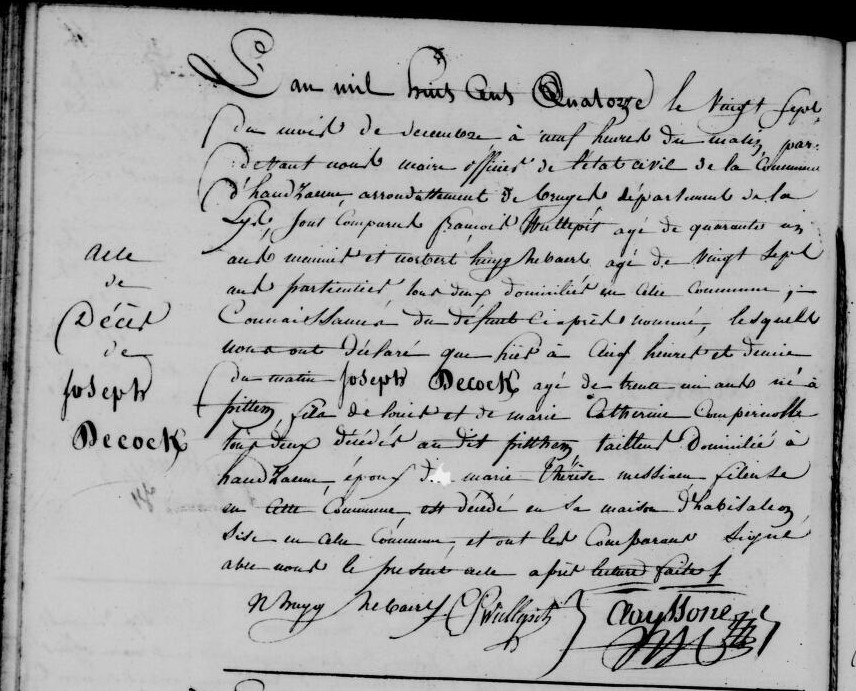 acte
de
Décès
de
Joseph
Decock
L'an mil huit cent Quatorze le vingt sept
du mois de decembre à neuf heures du matin, par-
devant nous maire officier de l'état civil de la Commune
d'handzaeme, arrondissement de bruges département de la
Lys, sont Comparus françois Wullepit agé de quarante un
ans menuisier et norbert huyghebaert agé de vingt sept
ans particulier tous deux domiciliés en cette commune,
Connaissances du défunt ci après nommé, lesquels
nous ont déclaré que hier à cinq heures et demie
du matin Joseph Decock, agé de trente un ans né à
pitthem, fils de louis et de marie Catherine Compernolle
tous deux décédés au dit pitthem tailleur Domicilié à
handzaeme, époux de marie thérèse messiaen fileuse
en cette Commune, est décédé en sa maison d'habitation
sise en cette Commune, et ont les Comparans signé
avec nous le présent acte après lecture faite
N huyghebaert F Wullepit Clayssone